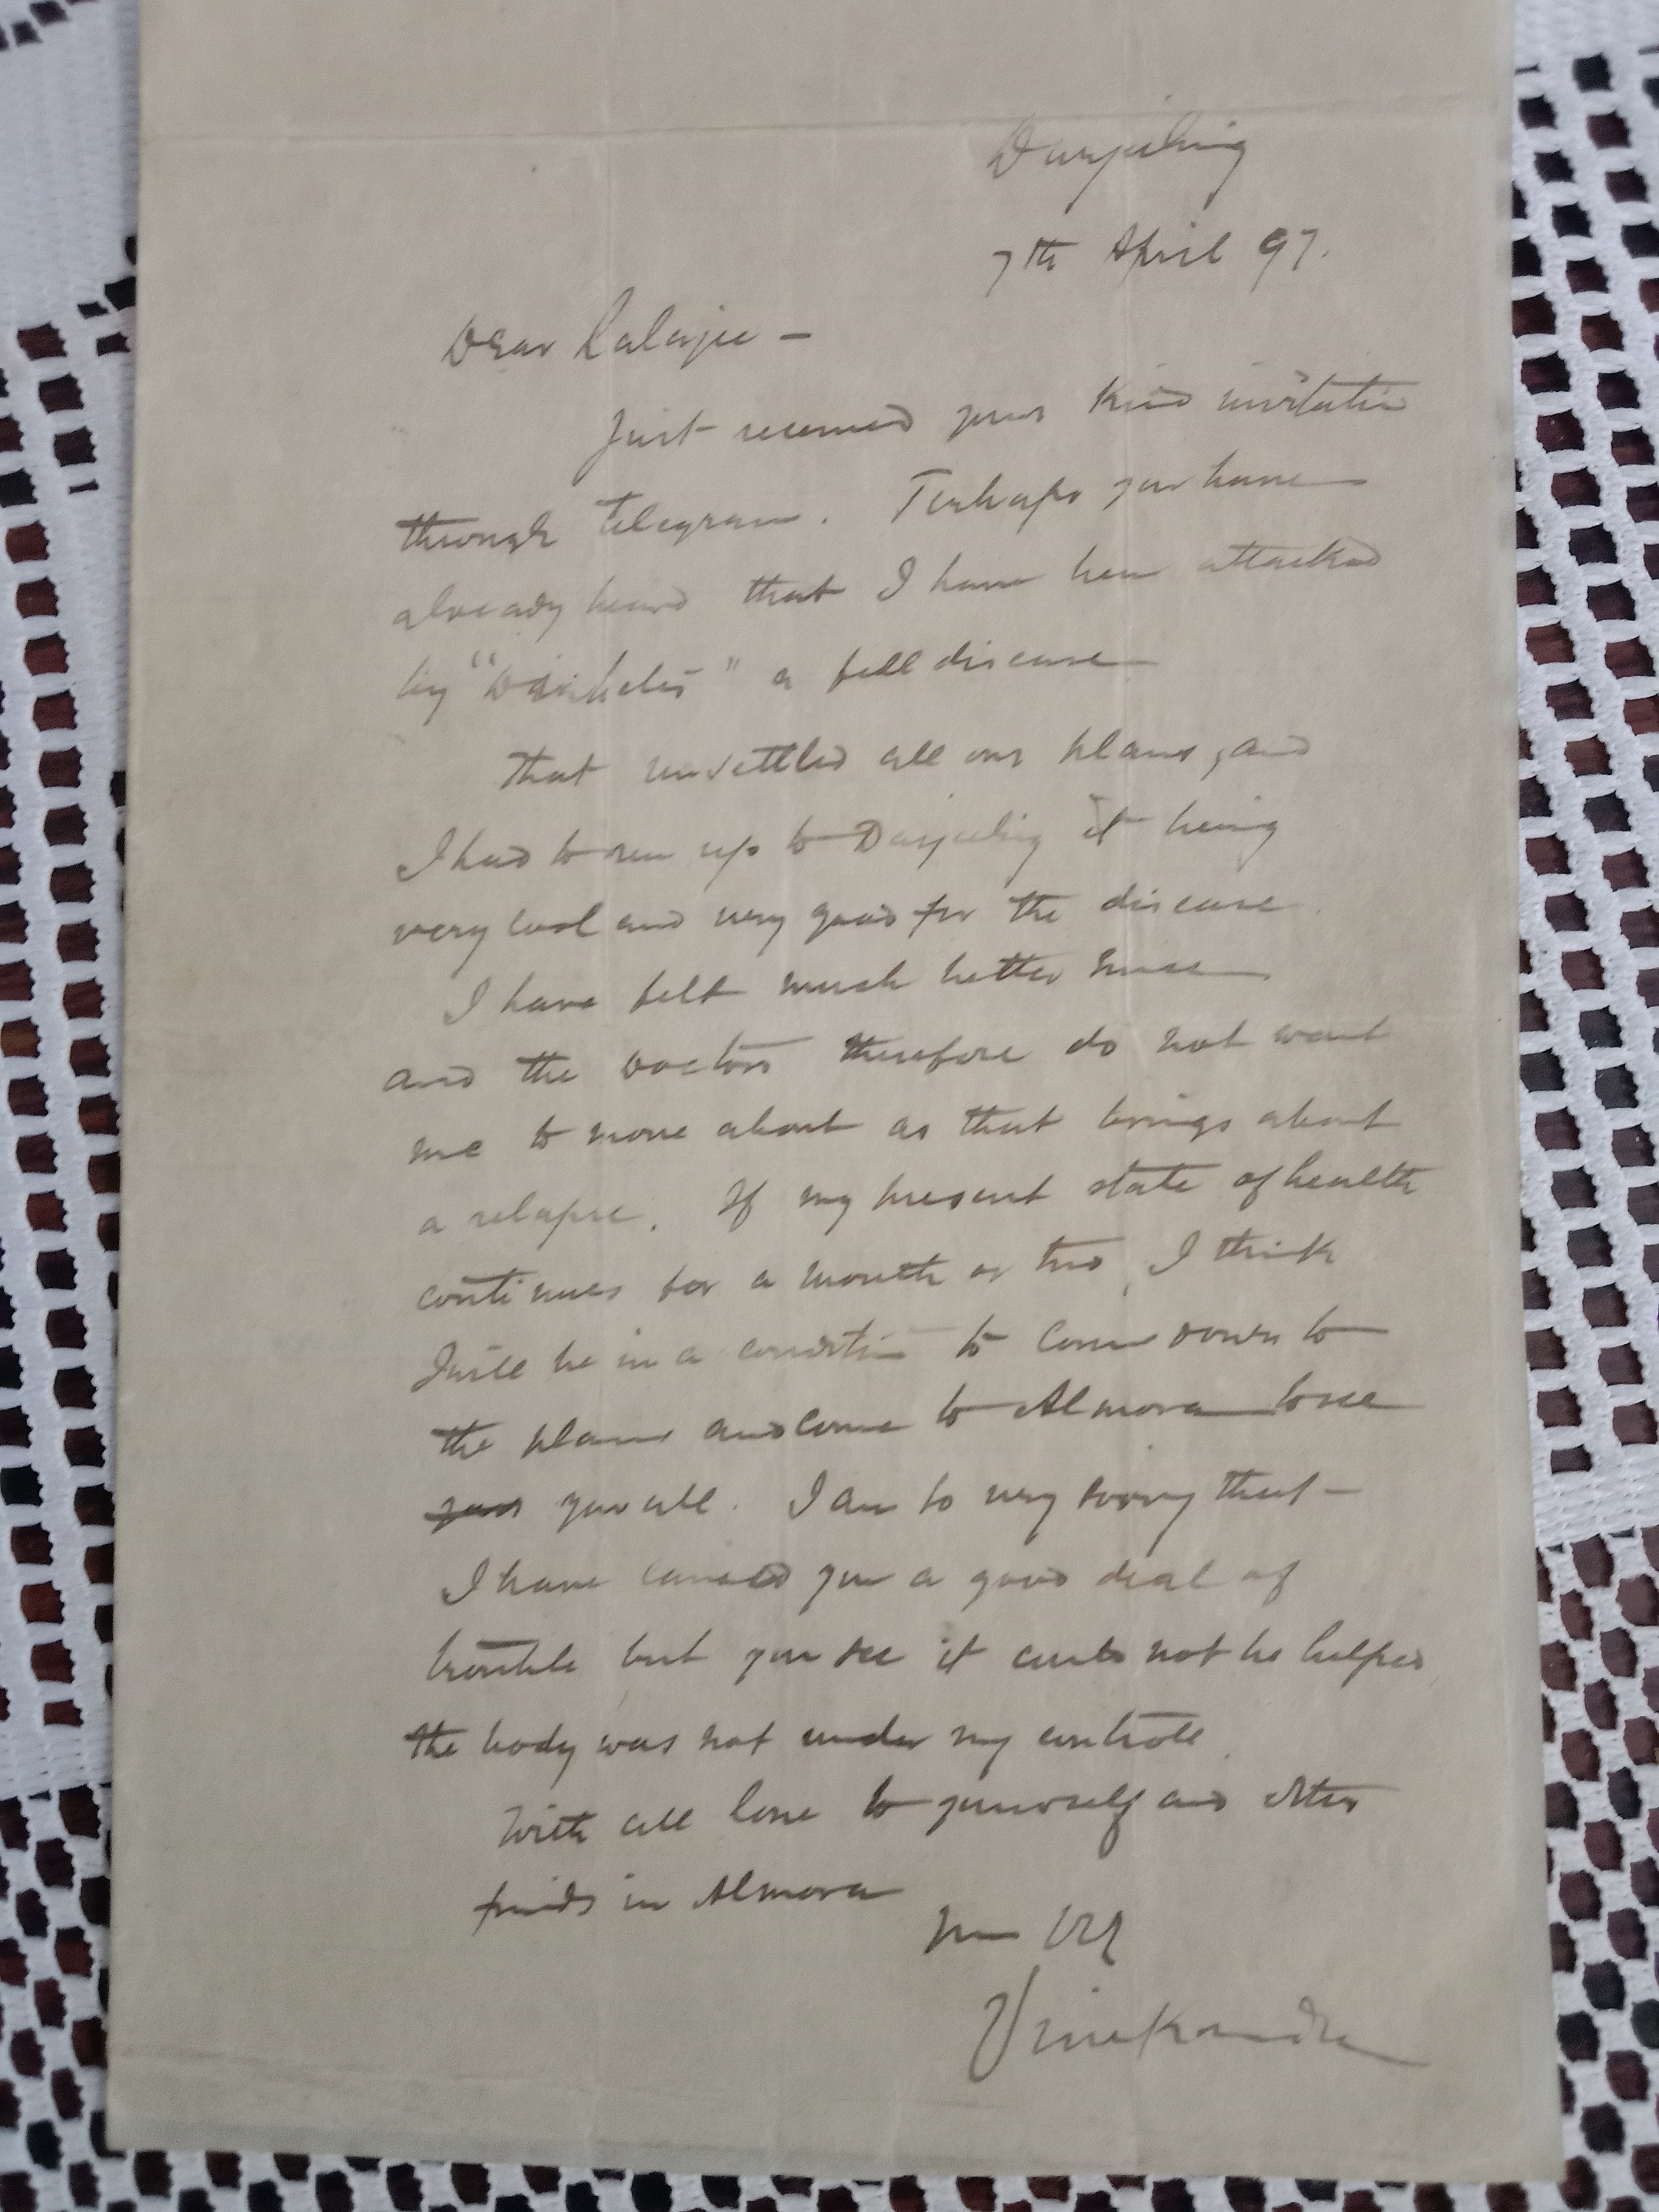 Darjeeling
7th April 97.
Dear Lalajee -
Just received your kind invitation
through Telegram. Perhaps you have
already heard that I have been attacked
by "Diabetes" a fell disease
That unsettled all our plans, and
I had to run up to Darjeeling it being
very cool and very good for the disease.
I have felt much better since
and the doctors therefore do not want
me to move about as that brings about
a relapse. If my present state of health
continues for a month or two, I think
I will be in a condition to come down to
the plains and come to Almora to see
your you all. I am so very sorry that -
I have caused you a good deal of
trouble but you see it could not be helped,
the body was not under my controll.
With all love to yourself and other
friends in Almora
Vivekananda